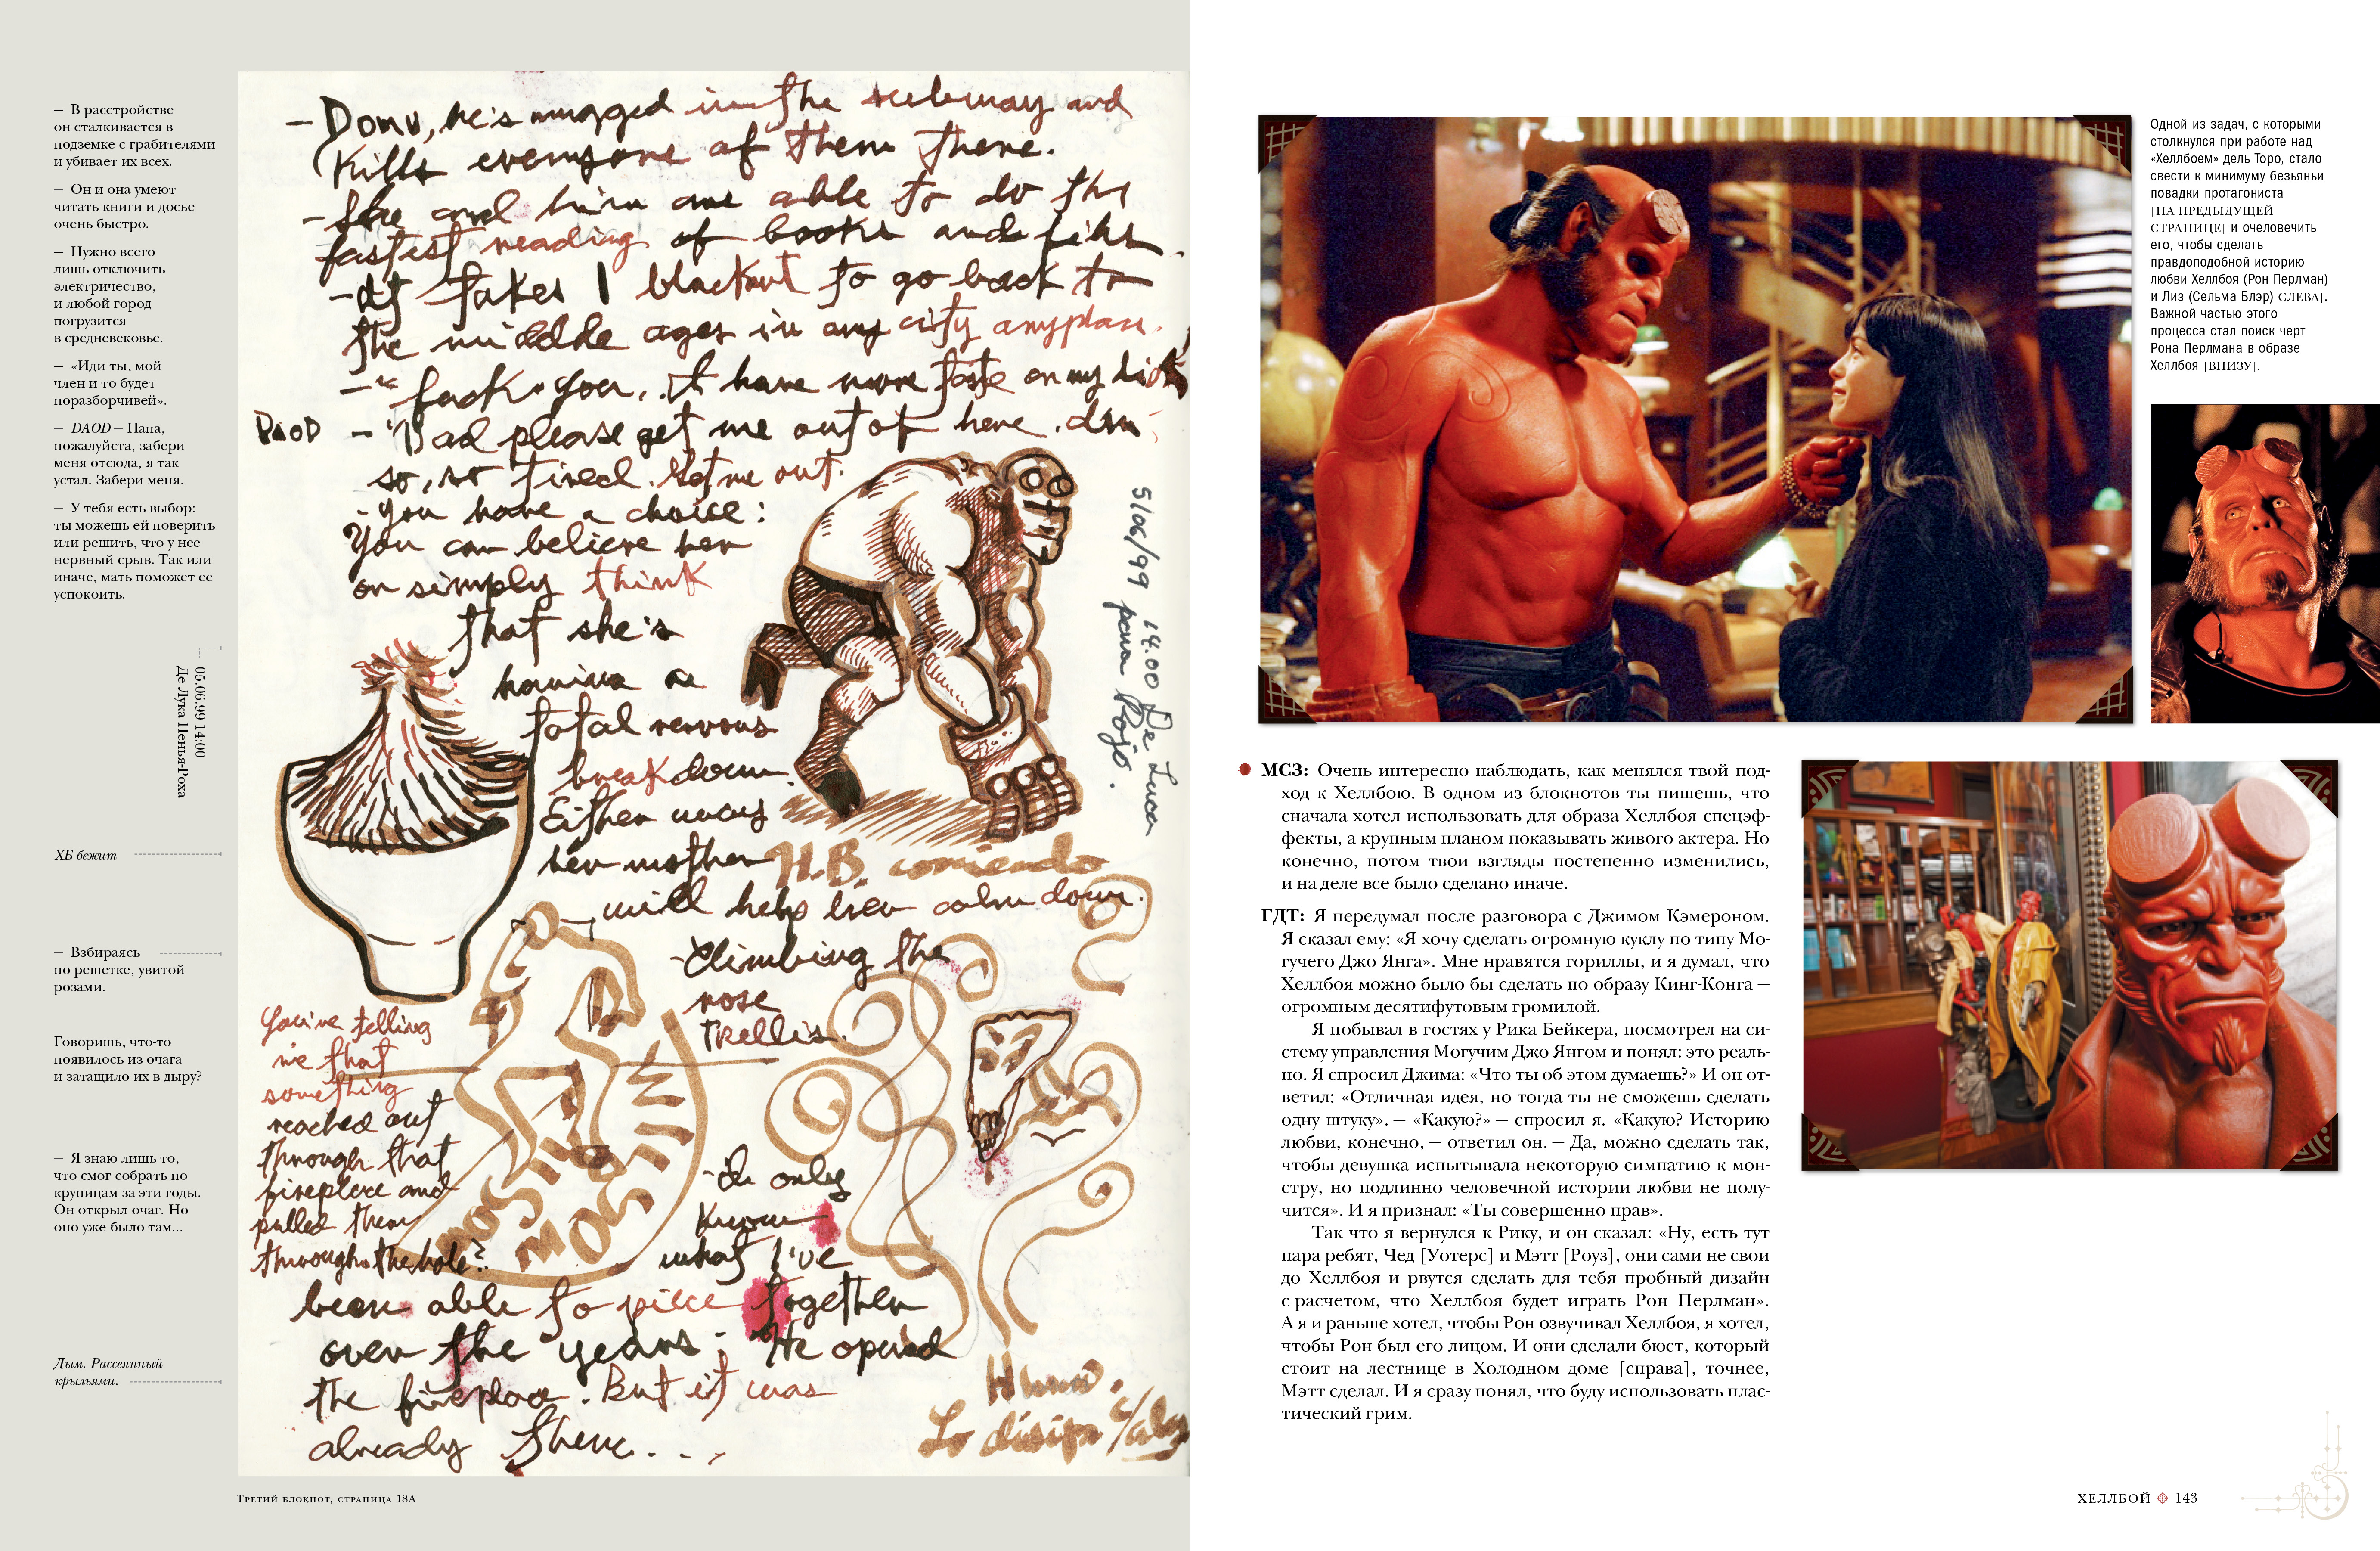 — В расстройстве
он сталкивается в
подземке с грабителями
и убивает их всех.
— Он и она умеют
читать книги и досье
очень быстро.
— Нужно всего
лишь отключить
электричество,
и любой город
погрузится
в средневековье.
— «Иди ты, мой
член и то будет
поразборчивей».
— DAOD — Папа,
пожалуйста, забери
меня отсюда, я так
устал. Забери меня.
— У тебя есть выбор:
ты можешь ей поверить
или решить, что у нее
нервный срыв. Так или
иначе, мать поможет ее
успокоить.
05.06.99 14:00
Де Лука Пенья-Роха
ХБ бежит
— Взбираясь
по решетке, увитой
розами.
Говоришь, что-то
появилось из очага
и затащило их в дыру?
— Я знаю лишь то,
что смог собрать по
крупицам за эти годы.
Он открыл очаг. Но
оно уже было там...
Дым. Рассеянный
крыльями.
– Domu, he's mugged in the subway and
kills everyone of them there.
– She and him are able to do the
fastest reading of books and files.
– It takes 1 blackout to go back to
the middle ages in any city anyplace.
– "fuck you, it have more taste on my dick"
DAOD – "Dad please get me out of here. I'm
so, so tired. Let me out.
– you have a choice:
You can believe her
or simply think
that she's
having a
total nervous
breakdown.
Either way
her mother
will help her calm down.
5/06/99 14.00 De Luca
pena Rojo.
H.B. corriendo
– Climbing the
rose
trellis.
You're telling
me that
something
reached out
through that
fireplace and
pulled them
through the hole?
– I only
know
what I've
been able to piece together
over the years: He opened
the fireplace. But it was
already there...
Humo.
Lo disipa c/alas
Третий блокнот, страница 18А
Одной из задач, с которыми
столкнулся при работе над
«Хеллбоем» дель Торо, стало
свести к минимуму безьяньи
повадки протагониста
[НА ПРЕДЫДУЩЕЙ
СТРАНИЦЕ] и очеловечить
его, чтобы сделать
правдоподобной историю
любви Хеллбоя (Рон Перлман)
и Лиз (Сельма Блэр) СЛЕВА].
Важной частью этого
процесса стал поиск черт
Рона Перлмана в образе
Хеллбоя [ВНИЗУ].
МСЗ: Очень интересно наблюдать, как менялся твой под-
ход к Хеллбою. В одном из блокнотов ты пишешь, что
сначала хотел использовать для образа Хеллбоя спецэф-
фекты, а крупным планом показывать живого актера. Но
конечно, потом твои взгляды постепенно изменились,
и на деле все было сделано иначе.
ГДТ: Я передумал после разговора с Джимом Кэмероном.
Я сказал ему: «Я хочу сделать огромную куклу по типу Мо-
гучего Джо Янга». Мне нравятся гориллы, и я думал, что
Хеллбоя можно было бы сделать по образу Кинг-Конга —
огромным десятифутовым громилой.
Я побывал в гостях у Рика Бейкера, посмотрел на си-
стему управления Могучим Джо Янгом и понял: это реаль-
но. Я спросил Джима: «Что ты об этом думаешь?» И он от-
ветил: «Отличная идея, но тогда ты не сможешь сделать
одну штуку». — «Какую?» — спросил я. «Какую? Историю
любви, конечно, — ответил он. — Да, можно сделать так,
чтобы девушка испытывала некоторую симпатию к мон-
стру, но подлинно человечной истории любви не полу-
чится». И я признал: «Ты совершенно прав».
Так что я вернулся к Рику, и он сказал: «Ну, есть тут
пара ребят, Чед [Уотерс] и Мэтт [Роуз], они сами не свои
до Хеллбоя и рвутся сделать для тебя пробный дизайн
с расчетом, что Хеллбоя будет играть Рон Перлман».
А я и раньше хотел, чтобы Рон озвучивал Хеллбоя, я хотел,
чтобы Рон был его лицом. И они сделали бюст, который
стоит на лестнице в Холодном доме [справа], точнее,
Мэтт сделал. И я сразу понял, что буду использовать плас-
тический грим.
ХЕЛЛБОЙ 143